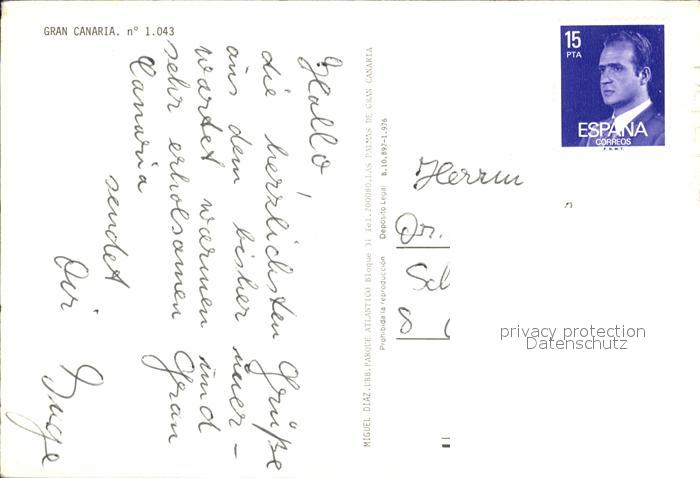 GRAN CANARIA. nº 1.043
Hallo!
die herzlichsten Grüße
aus dem bisher uner-
wartet warmen und
sehr erholsamen Gran
Canaria
sendet
Dir Inge
MIGUEL DIAZ.URB.PARQUE ATLANTICO Bloque 3I Tel.200080.LAS PALMAS DE GRAN CANARIA
Prohibida la reproducción Depósito Legal B.10.892-1.976
15
PTA
ESPAÑA
CORREOS
F.N.M.T.
Herrn
Dr.
privacy protection
Datenschutz